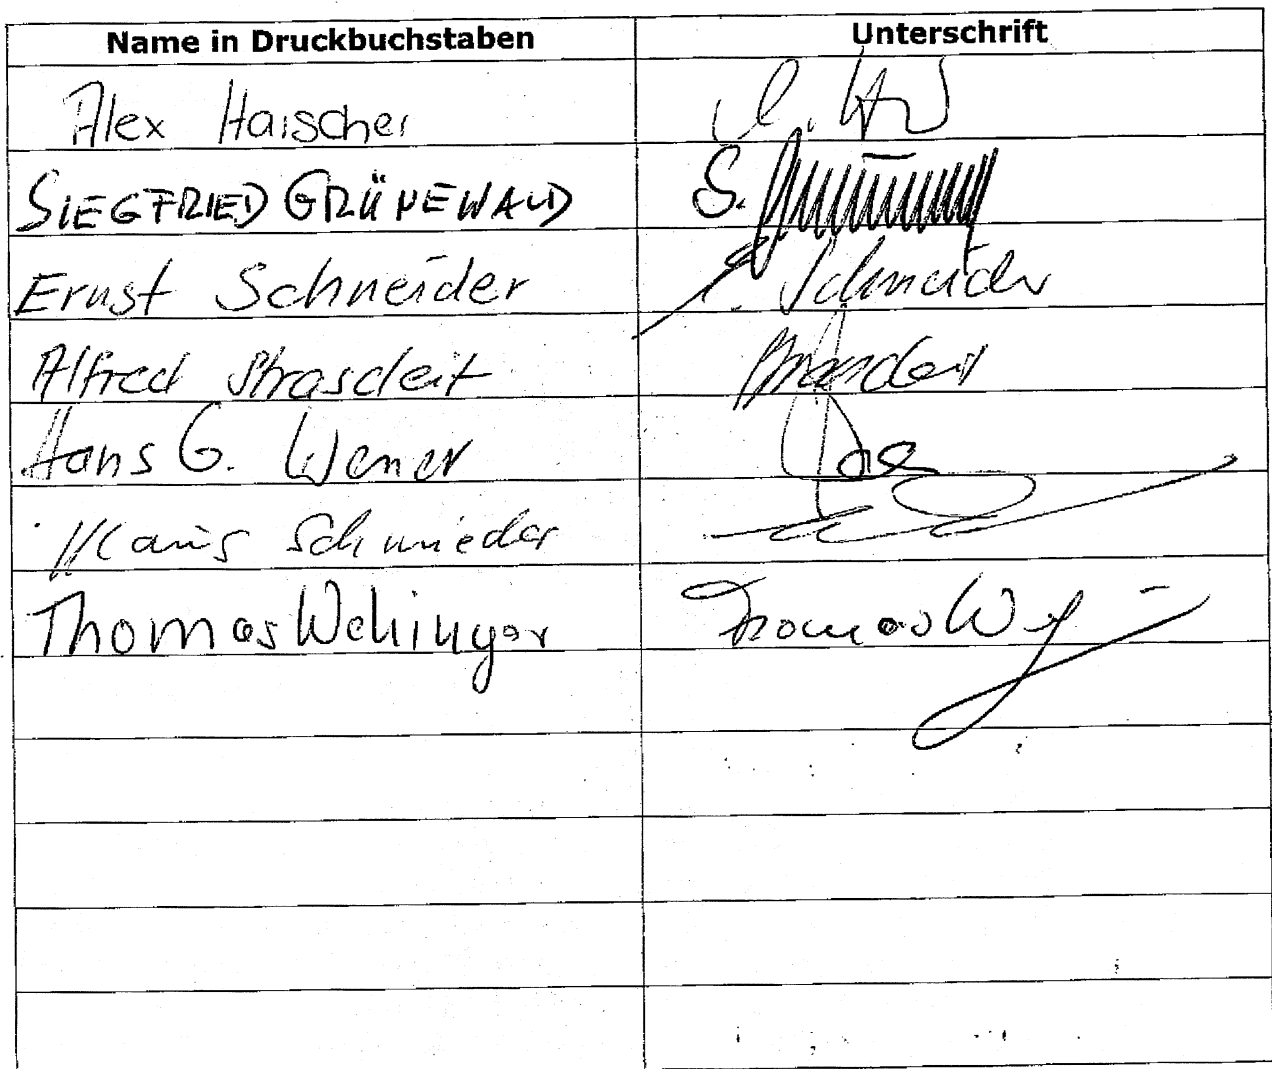 Name in Druckbuchstaben Unterschrift
Alex Haischer
SIEGFRIED GRÜNEWALD S.
Ernst Schneider Schneider
Alfred Strasdeit Strasdeit
Hans G. Wener
Klaus Schmieder
Thomas Wehinger Thomas